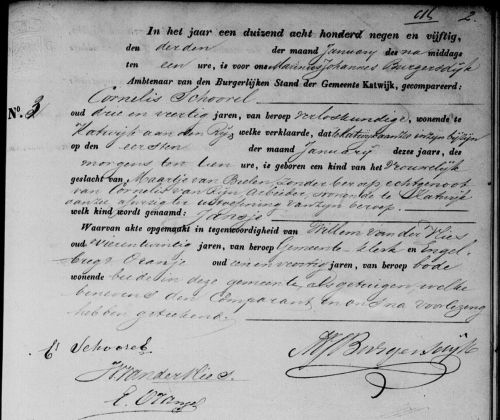 2.
In het jaar een duizend acht honderd negen en vijftig,
den derden der maand January des na middags
ten een ure, is voor ons Marinus Johannes Burgersdijk
Ambtenaar van den Burgerlijken Stand der Gemeente Katwijk, gecompareerd:
No. 3
Cornelis Schoorel
oud drie en veertig jaren, van beroep verloskundige, wonende te
Katwijk aan den Rijn welke verklaarde, dat
op den eersten der maand January dezes jaars, des
morgens ten tien ure, is geboren een kind van het Vrouwelijk
geslacht van Maartje van Beelen zonder beroep echtgenoot
van Cornelis van Rijn arbeider wonende te Katwijk
aan zee afwezig ter uitoefening van zijn beroep
welk kind wordt genaamd: Jansje
Waarvan akte opgemaakt in tegenwoordigheid van Willem van der Vlies
oud vierentwintig jaren, van beroep Gemeente klerk en Engel-
bregt Oranje oud een en veertig jaren, van beroep bode
wonende beide in deze gemeente, als getuigen, welke
benevens den Comparant en ons na voorlezing
hebben geteekend.
Cs Schoorel MJ Burgersdijk
W van der Vlies.
E. Oranje